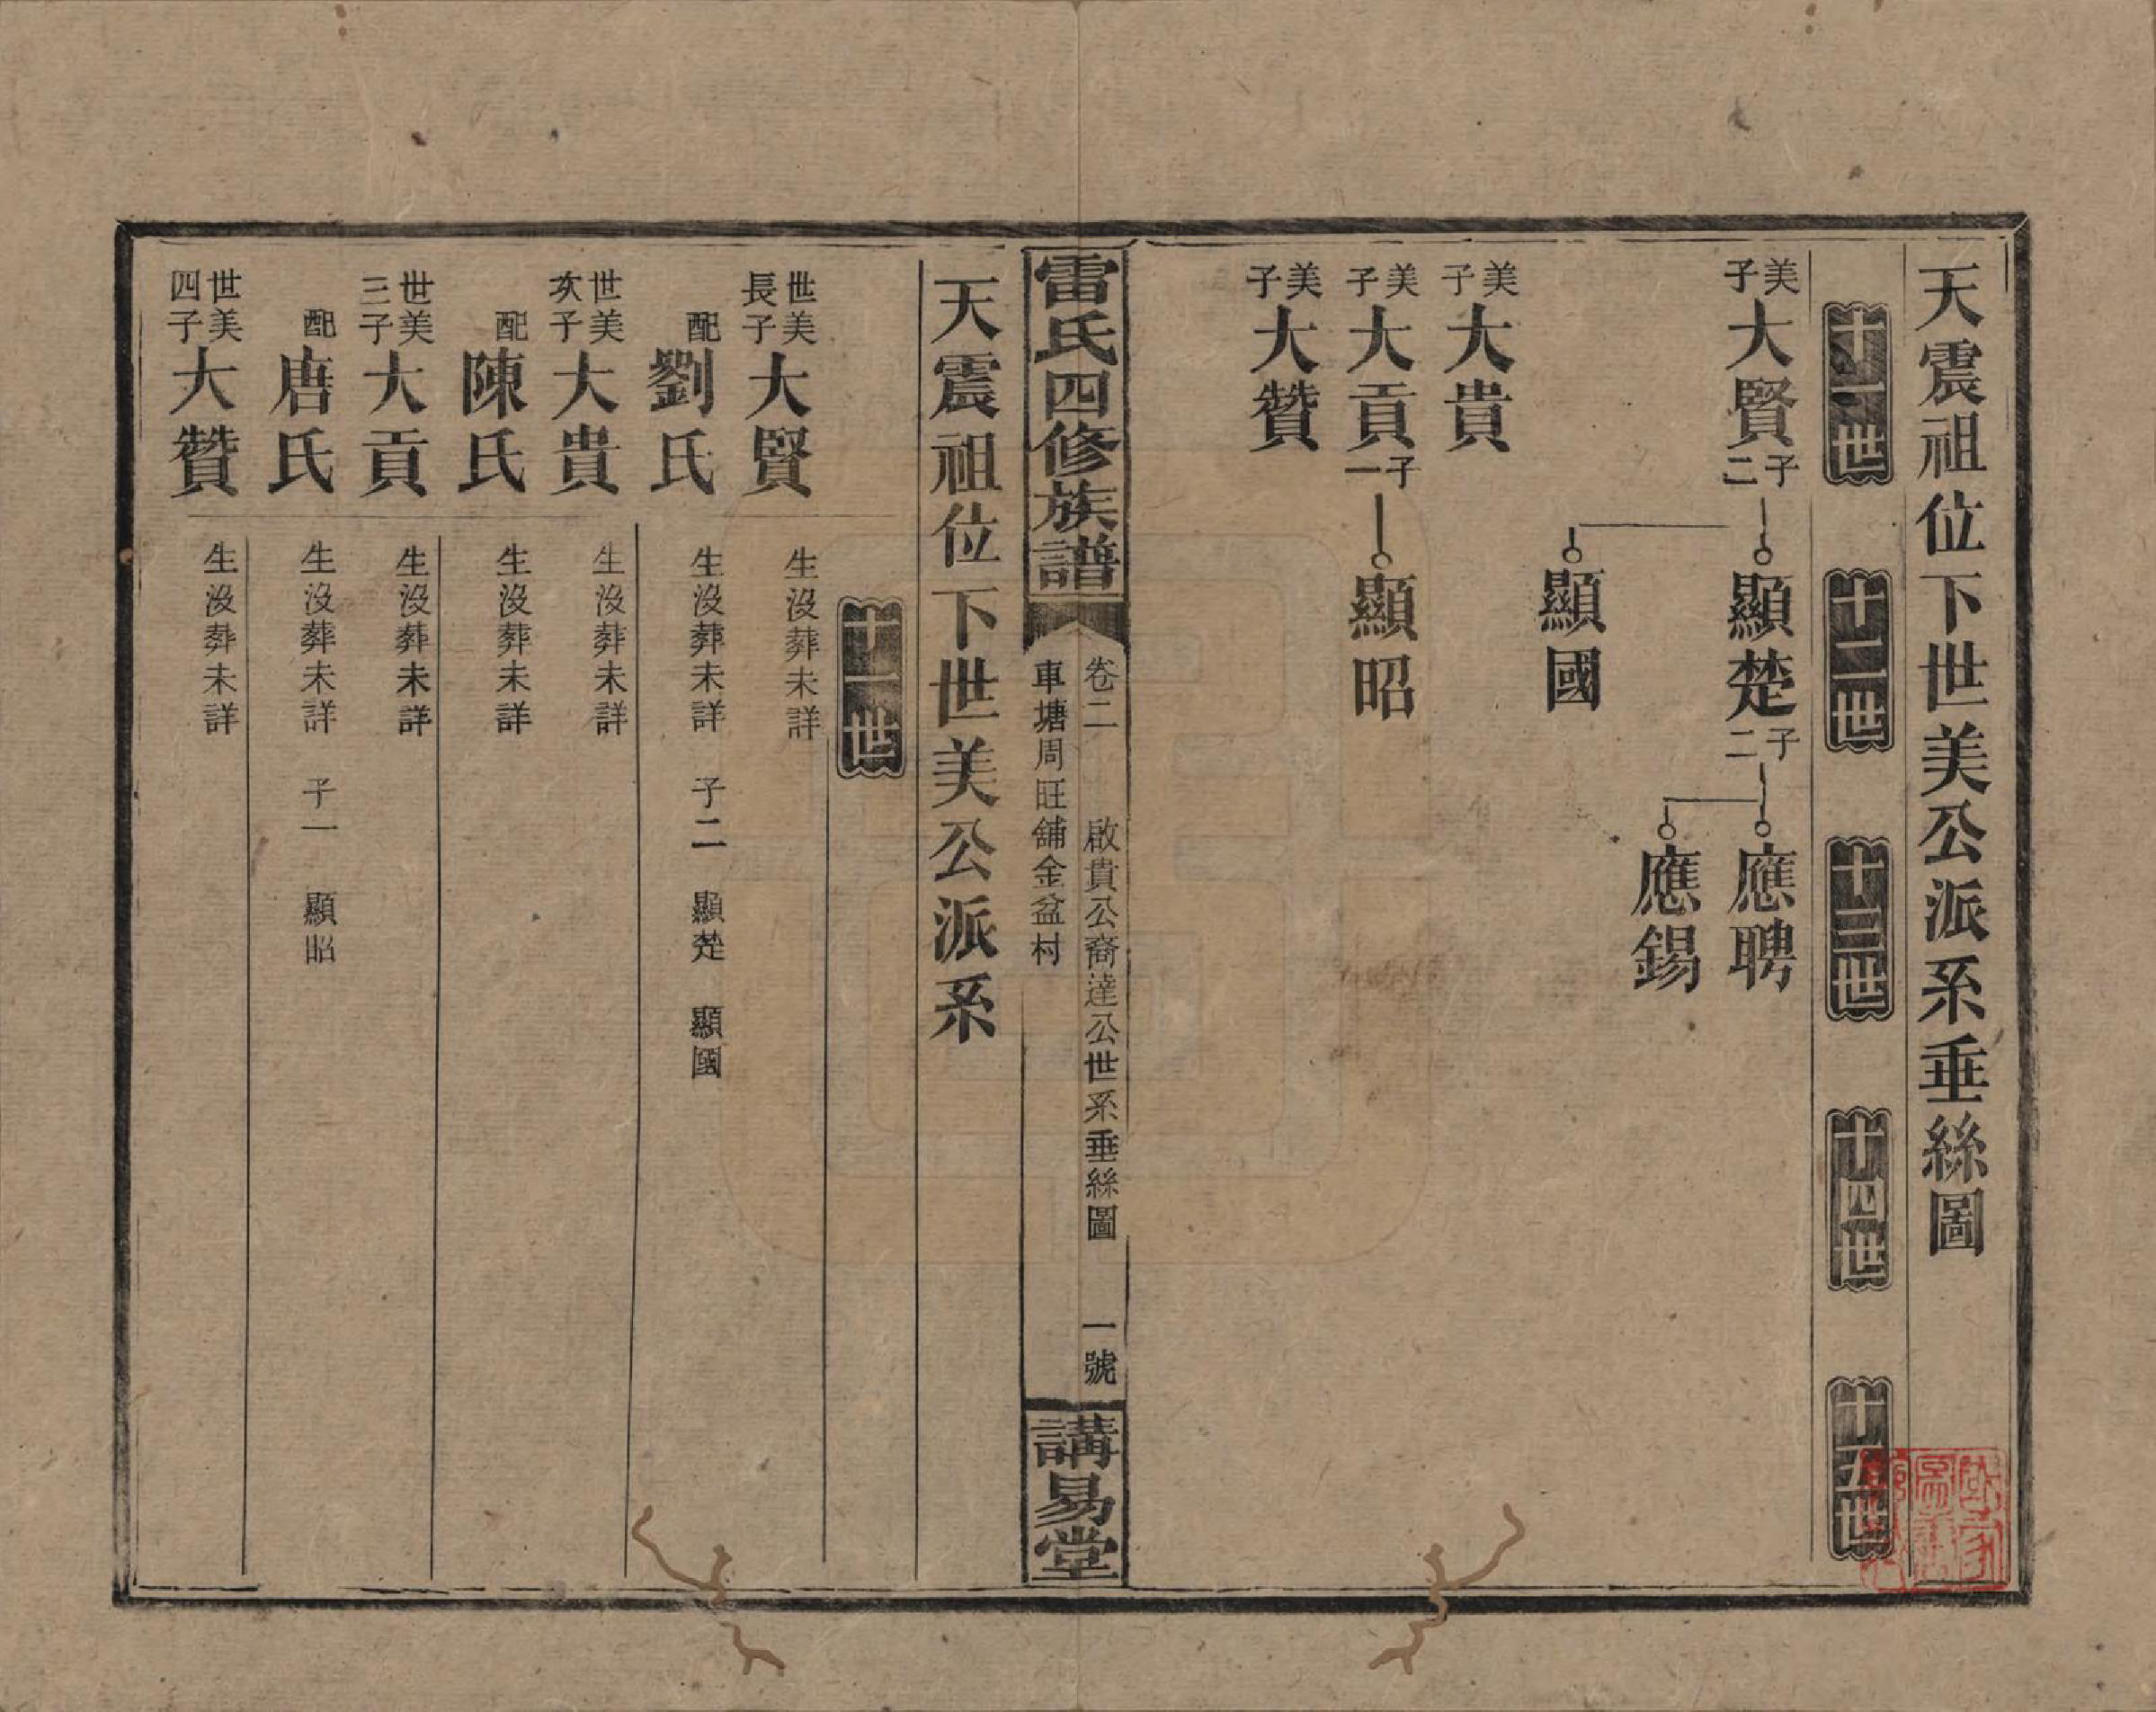 天震祖位下世美公派系垂絲圖
十一世
十二世
十三世
十四世
十五世
美子大賢子二
顯楚子二
應聘
應錫
顯國
美子大貴
美子大貢子一
顯昭
美子大贊
雷氏四修族譜
卷二 啟貴公裔達公世系垂絲圖 一號
車塘周旺舖金盆村
講易堂
天震祖位下世美公派系
十一世
世美長子大賢 生沒葬未詳
配劉氏 生沒葬未詳 子二 顯楚 顯國
世美次子大貴 生沒葬未詳
配陳氏 生沒葬未詳
世美三子大貢 生沒葬未詳
配唐氏 生沒葬未詳 子一 顯昭
世美四子大贊 生沒葬未詳